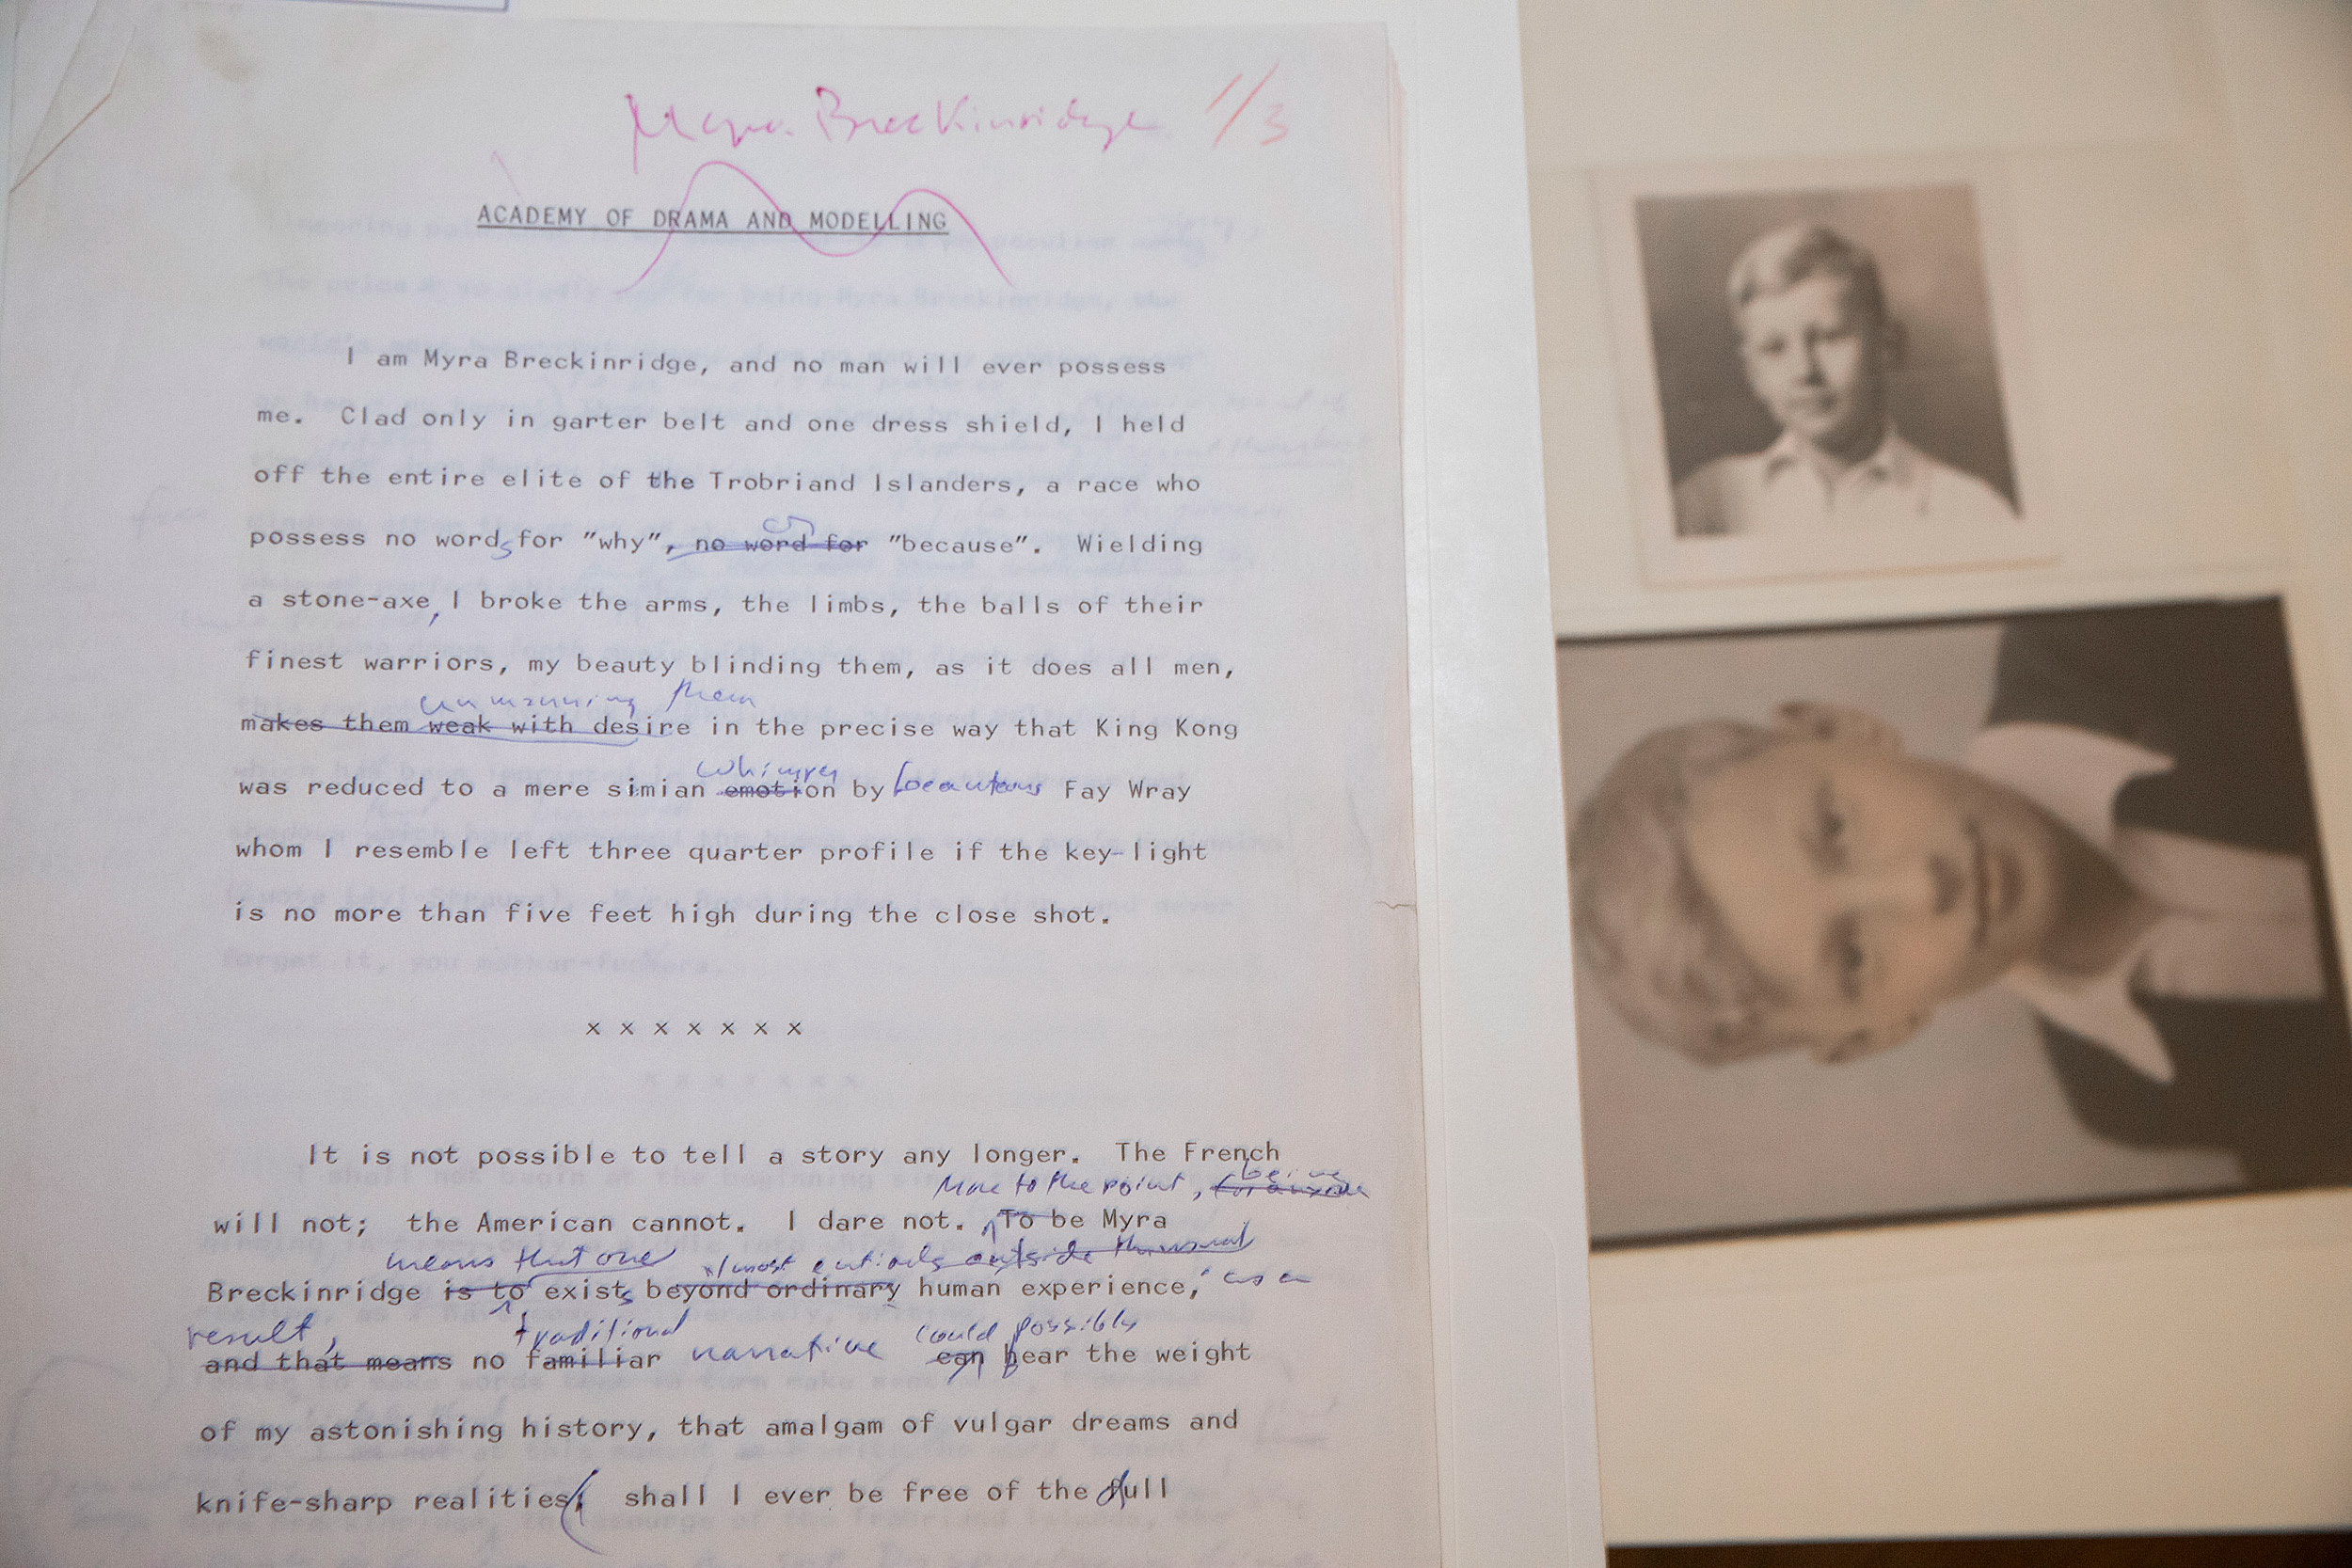 Myra Breckinridge 1/3
ACADEMY OF DRAMA AND MODELLING
I am Myra Breckinridge, and no man will ever possess
me. Clad only in garter belt and one dress shield, I held
off the entire elite of the Trobriand Islanders, a race who
or
possess no words for "why", no word for "because". Wielding
a stone-axe, I broke the arms, the limbs, the balls of their
finest warriors, my beauty blinding them, as it does all men,
unmanning them
makes them weak with desire in the precise way that King Kong
whimper
was reduced to a mere simian emotion by beauteous Fay Wray
whom I resemble left three quarter profile if the key-light
is no more than five feet high during the close shot.
x x x x x x x
It is not possible to tell a story any longer. The French
being
More to the point,
will not; the American cannot. I dare not. To be Myra
means that one almost entirely outside the usual
Breckinridge is to exists beyond ordinary human experience; as a
result, traditional could possibly
and that means no familiar narrative can bear the weight
of my astonishing history, that amalgam of vulgar dreams and
knife-sharp realities; shall I ever be free of the dull